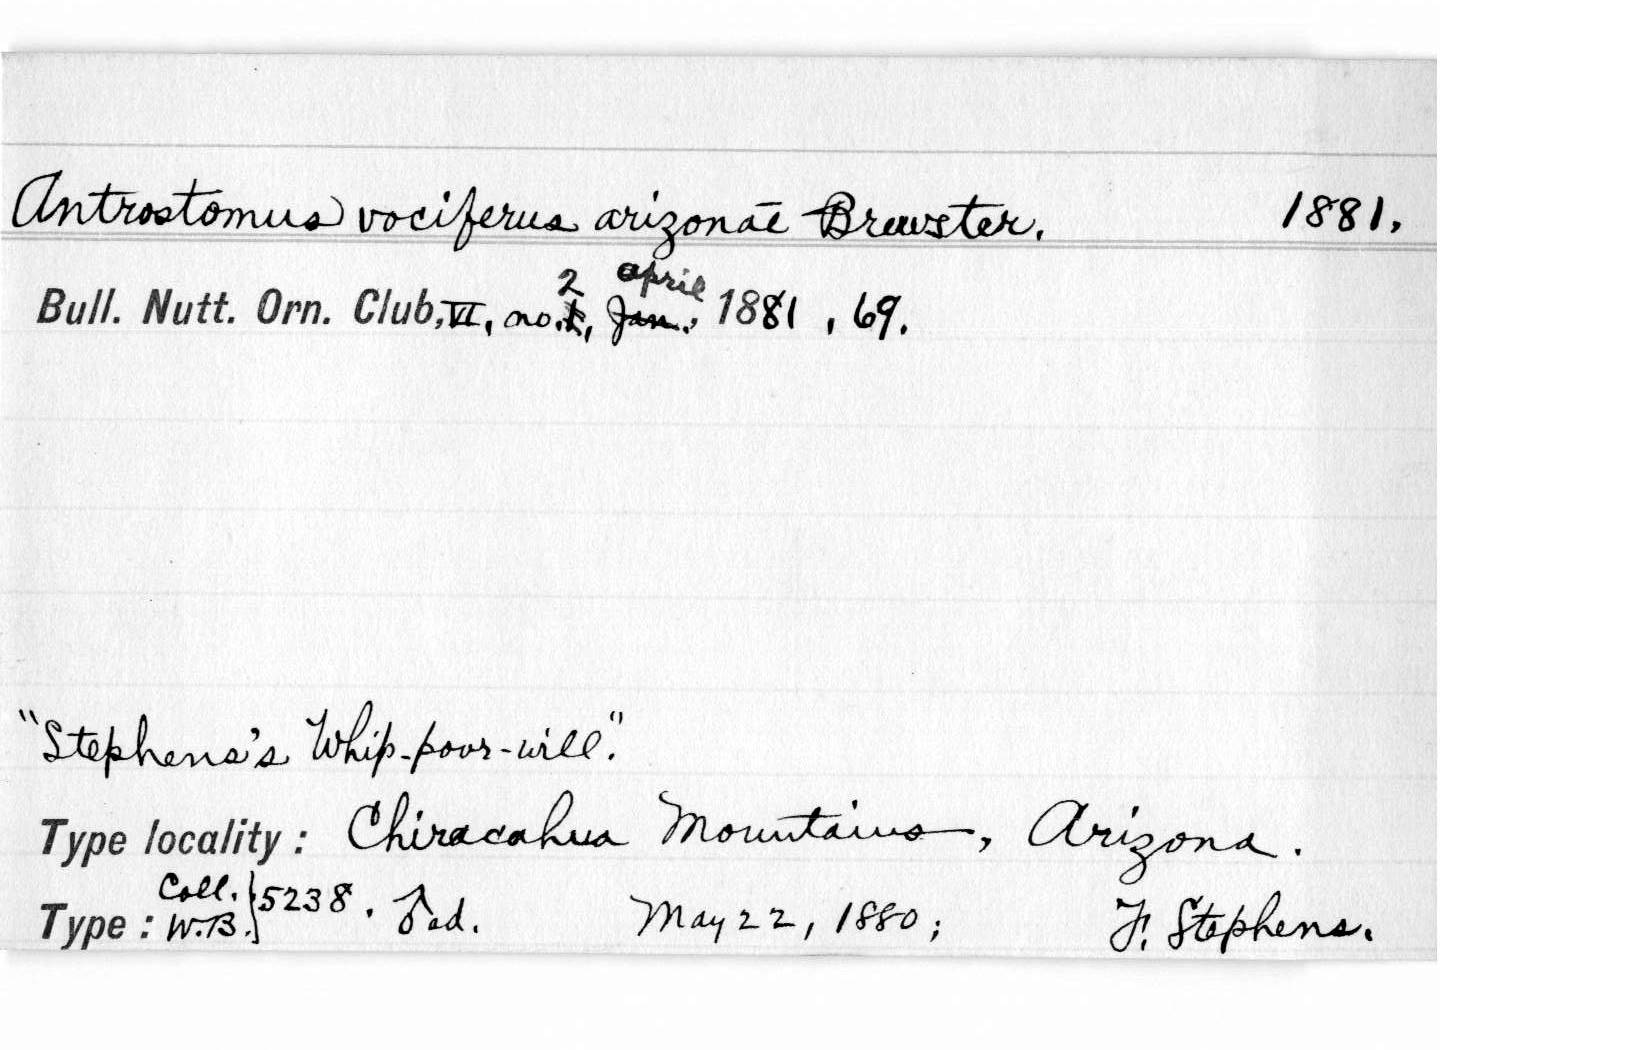 Antrostomus vociferus arizonae Brewster. 1881.
2 april
Bull. Nutt. Orn. Club, VI, no. 1, Jan., 1881, 69.
"Stephens's Whip-poor-will."
Type locality: Chiracahua Mountains, Arizona.
Coll.
Type: W.B. } 5238. ♂ ad. May 22, 1880; F. Stephens.